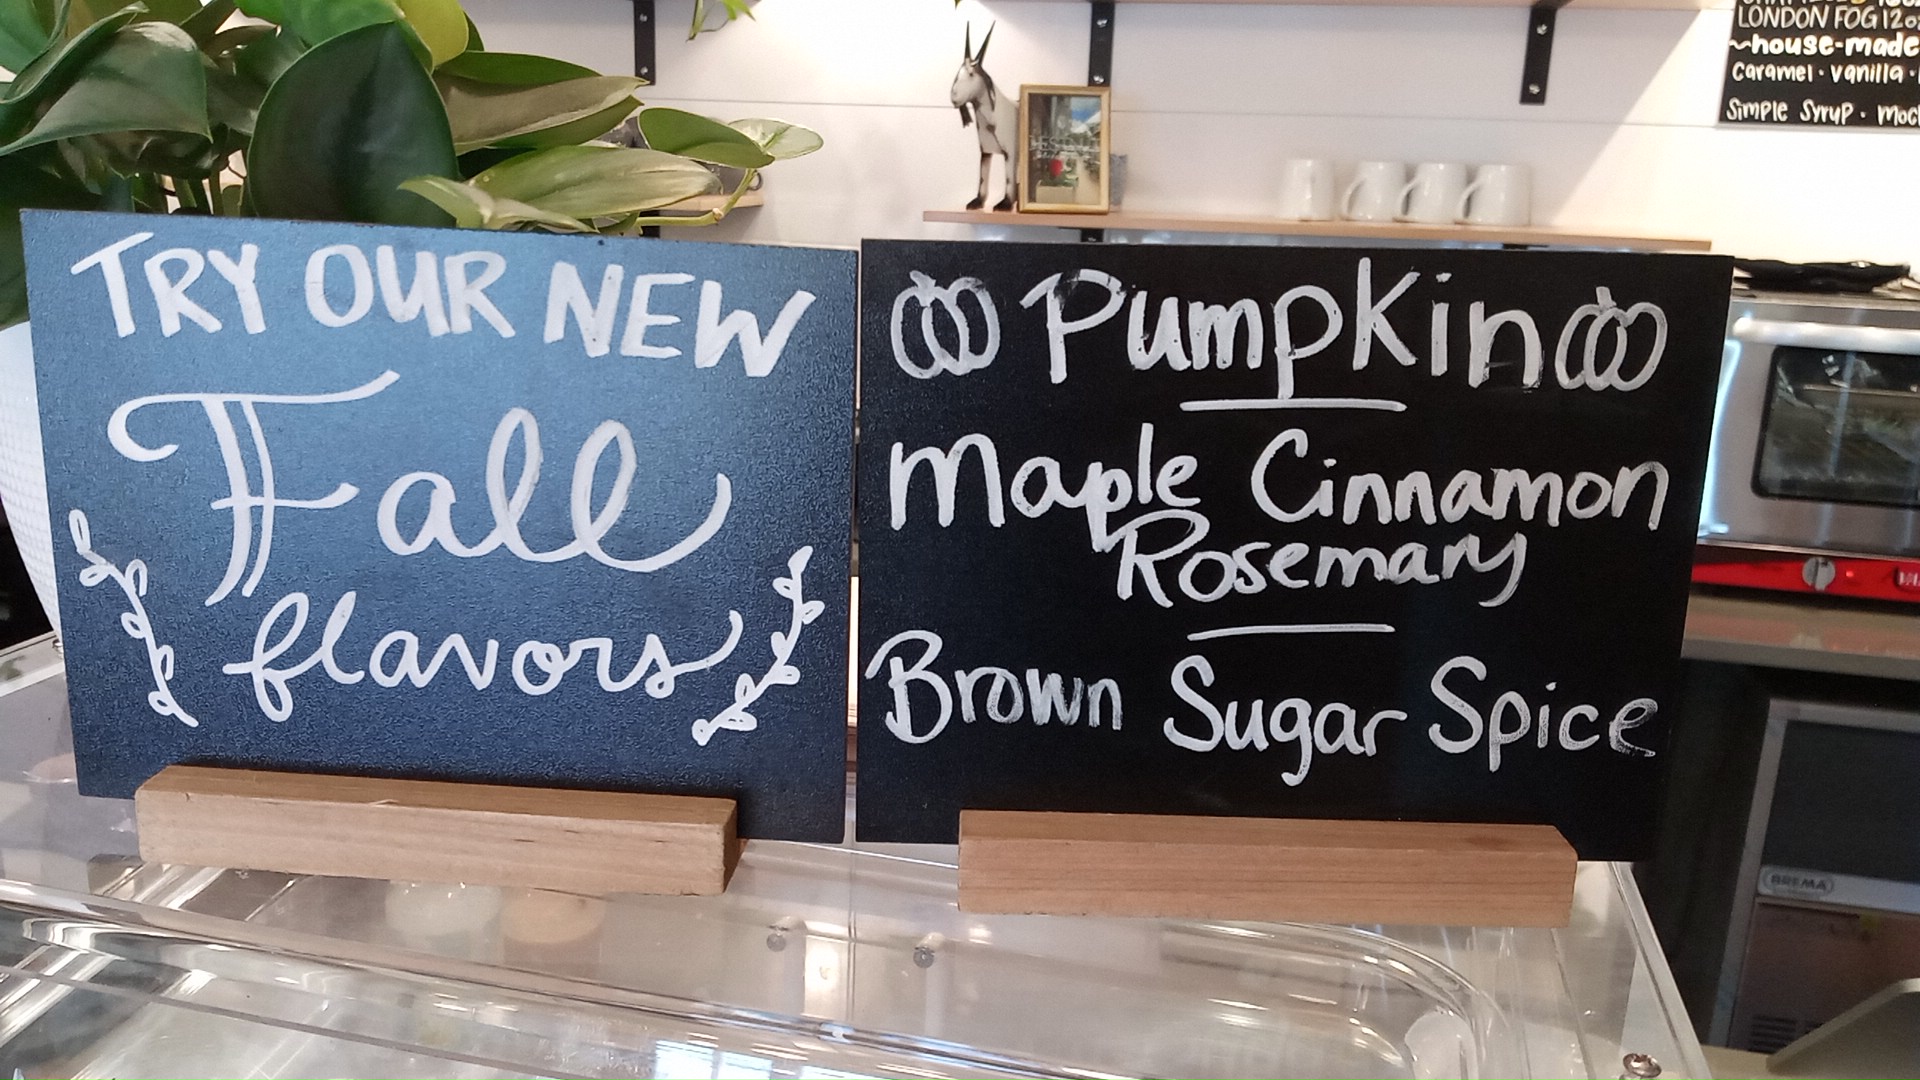 TRY OUR NEW
Fall
flavors
Pumpkin
Maple Cinnamon
Rosemary
Brown Sugar Spice
LONDON FOG 12oz
~house-made
Caramel · vanilla ·
Simple Syrup ·
BREMA